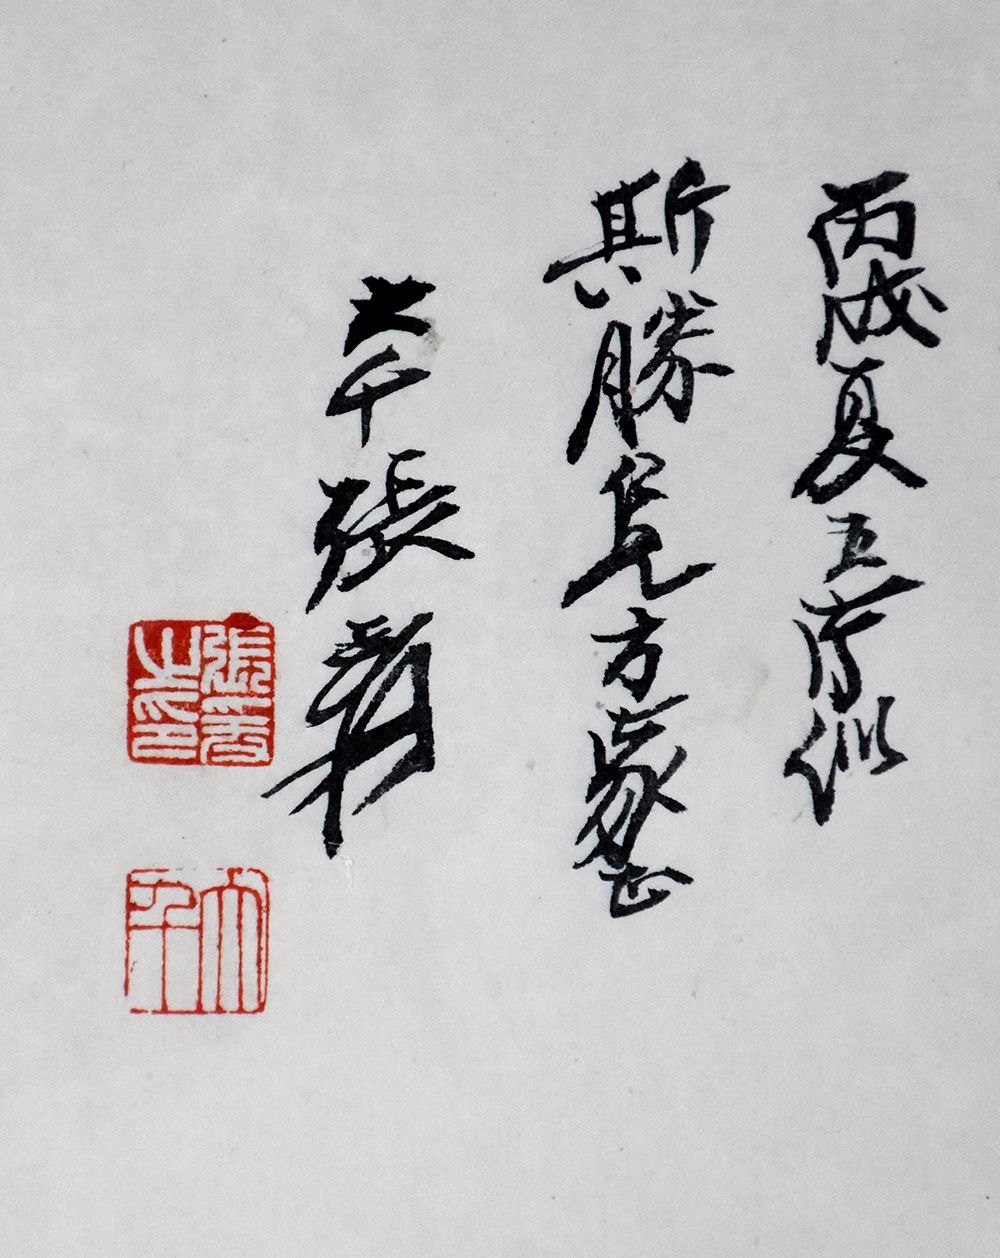 丙戌夏五寫似
斯勝仁兄方家正
大千張爰
張爰之印
大千